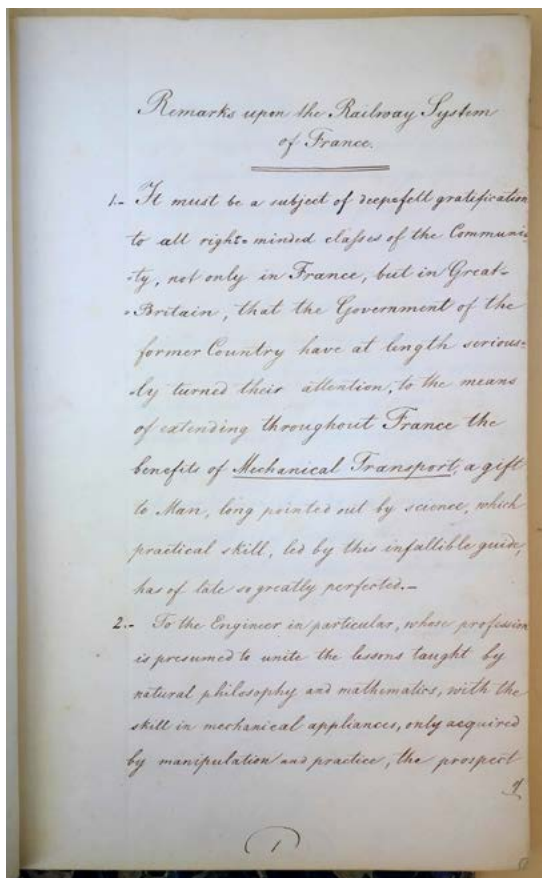 Remarks upon the Railway System
of France.
1.- It must be a subject of deepefelt gratification
to all right=minded classes of the Communi=
=ty, not only in France, but in Great=
=Britain, that the Government of the
former Country have at length serious=
=ly turned their attention, to the means
of extending throughout France the
benefits of Mechanical Transport, a gift
to Man, long pointed out by science, which
practical skill, led by this infallible guide,
has of late so greatly perfected.-
2.- To the Engineer in particular, whose profession
is presumed to unite the lessons taught by
natural philosophy and mathematics, with the
skill in mechanical appliances, only acquired
by manipulation and practice, the prospect
of
1